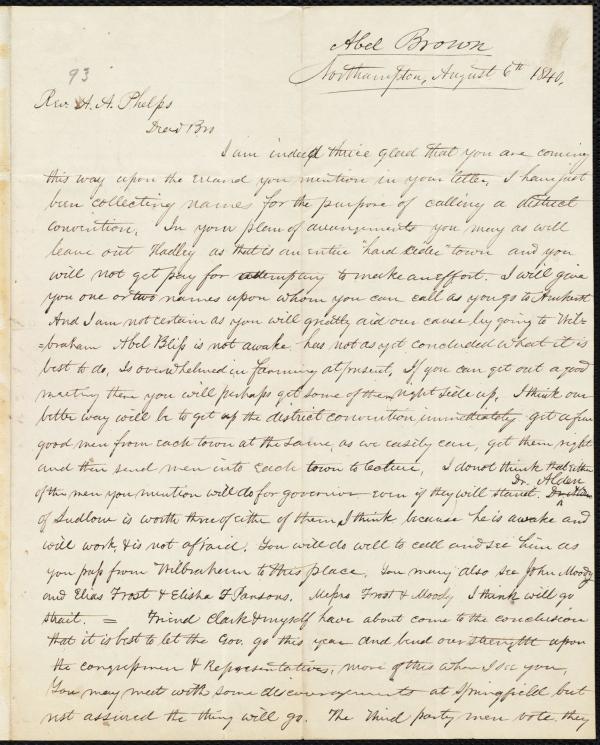 Abel Brown
Northampton, August 6th 1840.
93
Rev. A. A. Phelps
Dear Bro
I am indeed thrice glad that you are coming
this way upon the errand you mention in your letter. I have just
been collecting names for the purpose of calling a district
convention. In your plan of arrangements you may as well
leave out Hadley as that is an entire "hard cider" town and you
will not get pay for attempting to make an effort. I will give
you one or two names upon whom you can call as you go to Amherst
And I am not certain as you will greatly aid our cause by going to Wil-
=braham Abel Bliss is not awake. has not as yet concluded what it is
best to do, Is overwhelmed in farming at present, If you can get out a good
meeting there you will perhaps get some of them right side up. I think our
better way will be to get up the district convention immediately get a few
good men from each town at the same, as we easily can, get them right
and then send men into each town to lecture, I do not think that either
of the men you mention will do for governor even if they will stand. Dr. Alden
of Ludlow is worth three of either of them I think because he is awake and
will work & is not afraid. You will do well to call and see him as
you pass from Wilbraham to this place. You may also see John Moody
and Elias Frost & Elisha F Parsons. Messrs Frost & Moody I think will go
strait. = Friend Clark & myself have about come to the conclusion
that it is best to let the Gov. go this year and bend our strength upon
the congressmen & Representatives, more of this when I see you,
You may meet with some discouragements at Springfield but
rest assured the thing will go. The third party men vote they